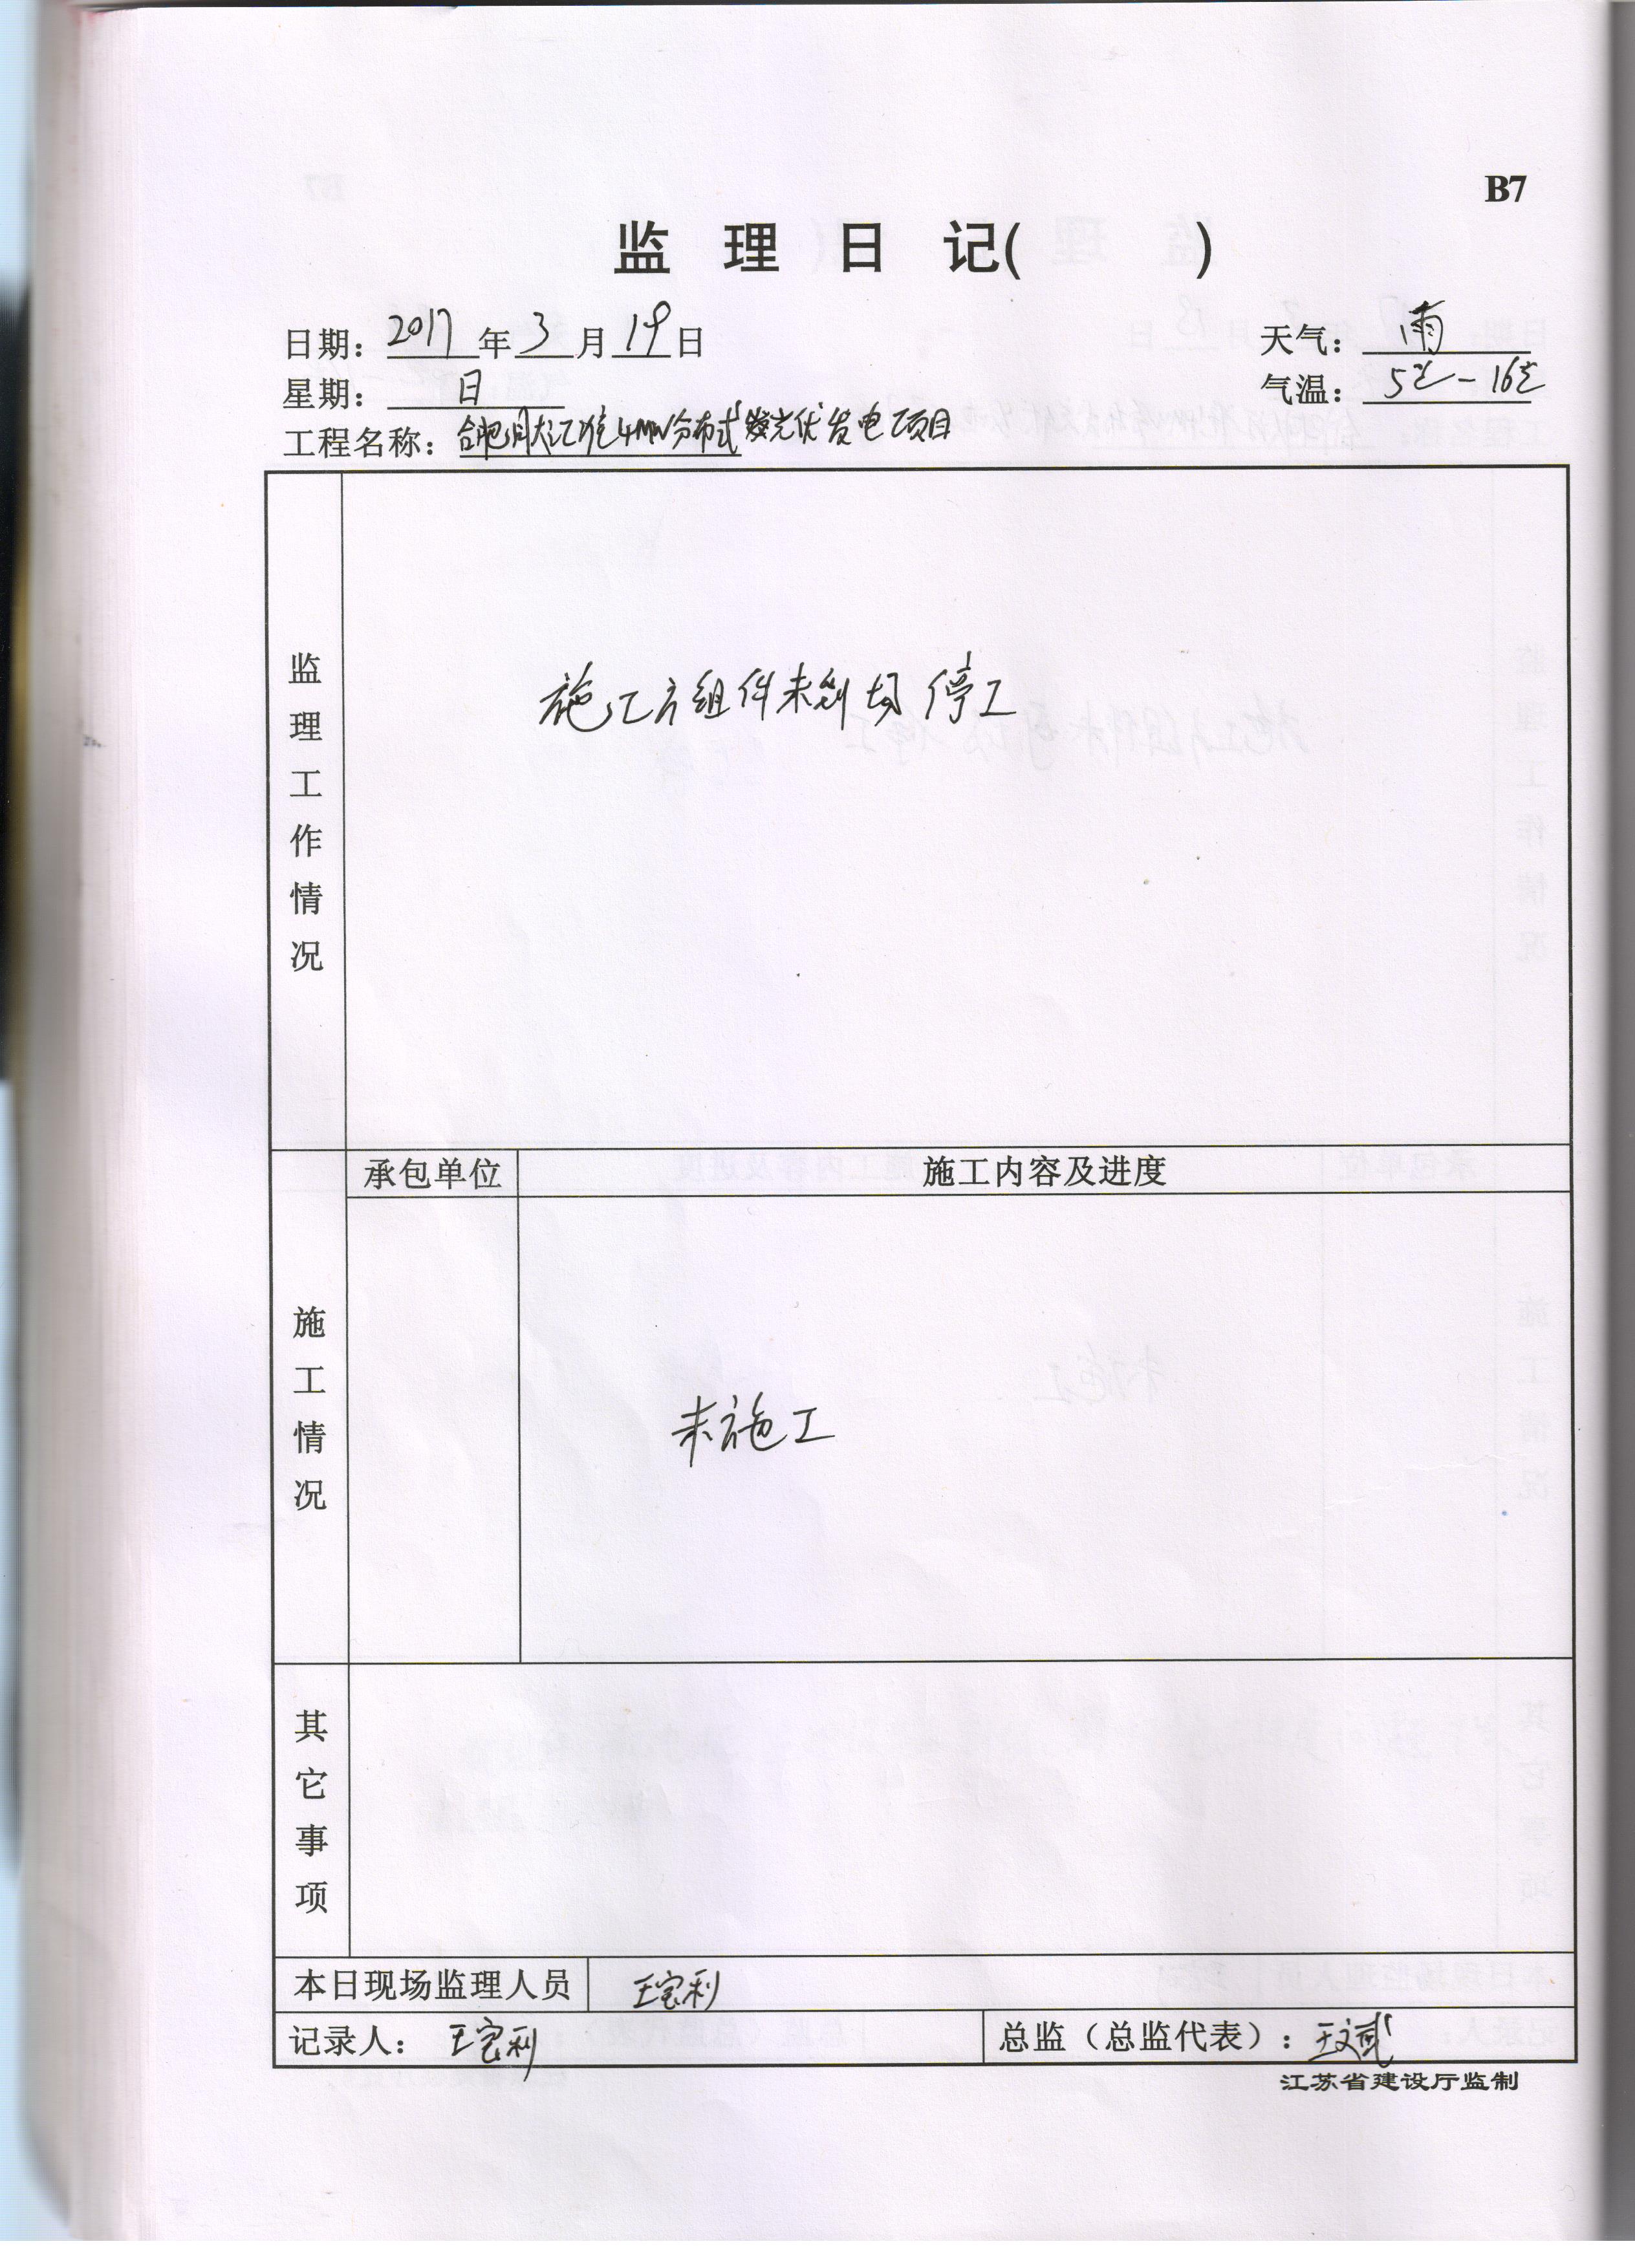 B7
监理日记( )
日期：2017年3月19日 天气：雨
星期：日 气温：5℃-16℃
工程名称：合肥江淮4MW分布式光伏发电项目
监理工作情况
施工方组件未到场 停工
承包单位 施工内容及进度
施工情况
未施工
其它事项
本日现场监理人员 王宝利
记录人：王宝利 总监（总监代表）：王文斌
江苏省建设厅监制